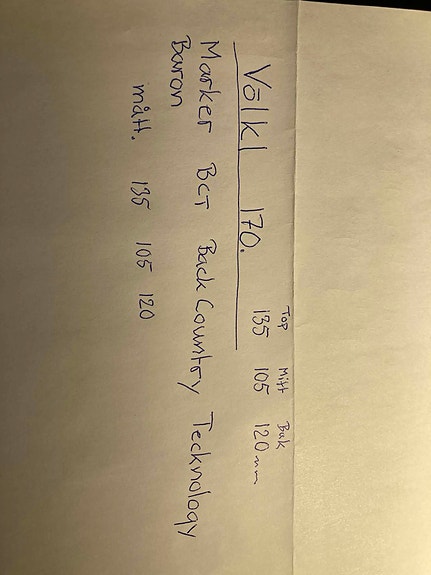 Top Mitt Bak
Völkl 170. 135 105 120mm
Marker BCT Back Country Technology
Baron
mått. 135 105 120